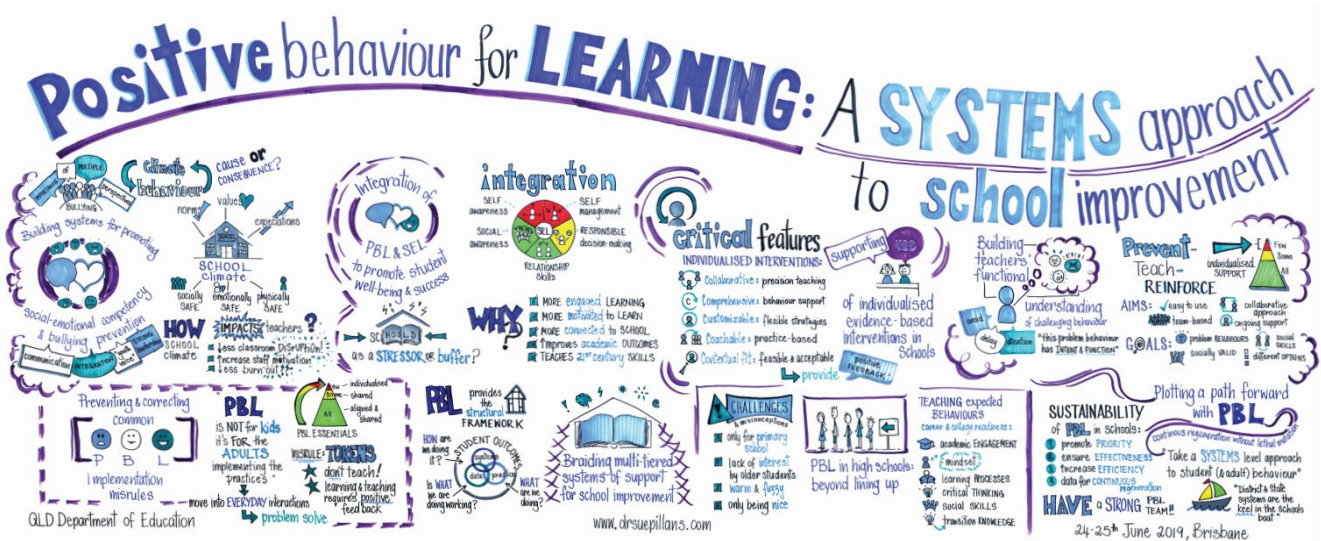 Positive behaviour for LEARNING: A SYSTEMS approach
to school improvement
IMPORTANCE
of
MULTIPLE
perspectives
BULLYING
Climate
behaviour
cause or
CONSEQUENCE?
Building systems for promoting
social-emotional competency
& bullying prevention
communication
INTEGRATION
values
norms
expectations
SCHOOL
Climate
socially
SAFE
emotionally
SAFE
physically
SAFE
HOW
SCHOOL
climate
IMPACTS teachers?
↓less classroom DISRUPTION!
↑increase staff motivation
↓less burn out!
Integration of
PBL & SEL
to promote student
well-being & success
SCHOOLS
as a STRESSOR or buffer?
integration
SELF
awareness
SELF
management
SOCIAL-
awareness
SEL
RESPONSIBLE
decision-making
RELATIONSHIP
Skills
WHY?
MORE engaged LEARNING
MORE motivated to LEARN
MORE connected to SCHOOL
Improves academic OUTCOMES
TEACHES 21st century SKILLS
Critical features
INDIVIDUALISED INTERVENTIONS:
Collaborative: precision teaching
Comprehensive: behaviour support
Customizable: flexible strategies
Coachable: practice-based
Contextual fit: feasible & acceptable
provide
positive
FEEDBACK
supporting
USE
of individualised
evidence-based
interventions in
Schools
Building
teachers'
functional
understanding
of challenging behaviour
avoid
delay
attention
"this problem behaviour
has INTENT & FUNCTION"
Prevent-
Teach-
REINFORCE
individualised
SUPPORT
Few
Some
All
AIMS:
easy to use
team-based
collaborative
approach
ongoing support
GOALS:
problem BEHAVIOURS
socially VALID
SOCIAL
SKILLS
different OPTIONS
Preventing & correcting
common
P B L
implementation
misrules
"PBL
is NOT for kids
it's FOR the
ADULTS
implementing the
practices"
move into EVERYDAY interactions
problem solve
Few
Some
All
individualised
shared
aligned &
shared
PBL ESSENTIALS
MISRULE: TOKENS
don't teach!
learning & teaching
requires positive
feed back
PBL
provides
the
structural
FRAMEWORK
HOW are
we doing
it?
STUDENT OUTCOMES
systems
data
practices
IS WHAT
WE are
doing working?
WHAT
are we
doing?
Braiding multi-tiered
systems of support
for school improvement
CHALLENGES
& misconceptions
only for primary
school
lack of interest
by older students
warm & fuzzy
only being nice
PBL in high schools:
beyond lining up
TEACHING expected
BEHAVIOURS
career & college readiness:
academic ENGAGEMENT
"mindset"
learning PROCESSES
critical THINKING
social SKILLS
transition KNOWLEDGE
Plotting a path forward
with PBL
continuous regeneration without lethal mutation
SUSTAINABILITY
of PBL in schools:
promote PRIORITY
ensure EFFECTIVENESS
increase EFFICIENCY
data for CONTINUOUS
regeneration
"Take a SYSTEMS level approach
to student (& adult) behaviour"
HAVE a STRONG PBL
TEAM!!
"District & State
systems are the
keel in the schools
boat"
QLD Department of Education
www.drsuepillans.com
24-25th June 2019, Brisbane